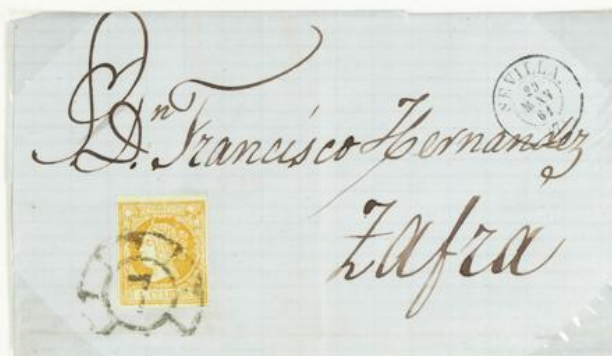 SEVILLA.
29
MAY
61
Dn. Francisco Hernandez
Zafra